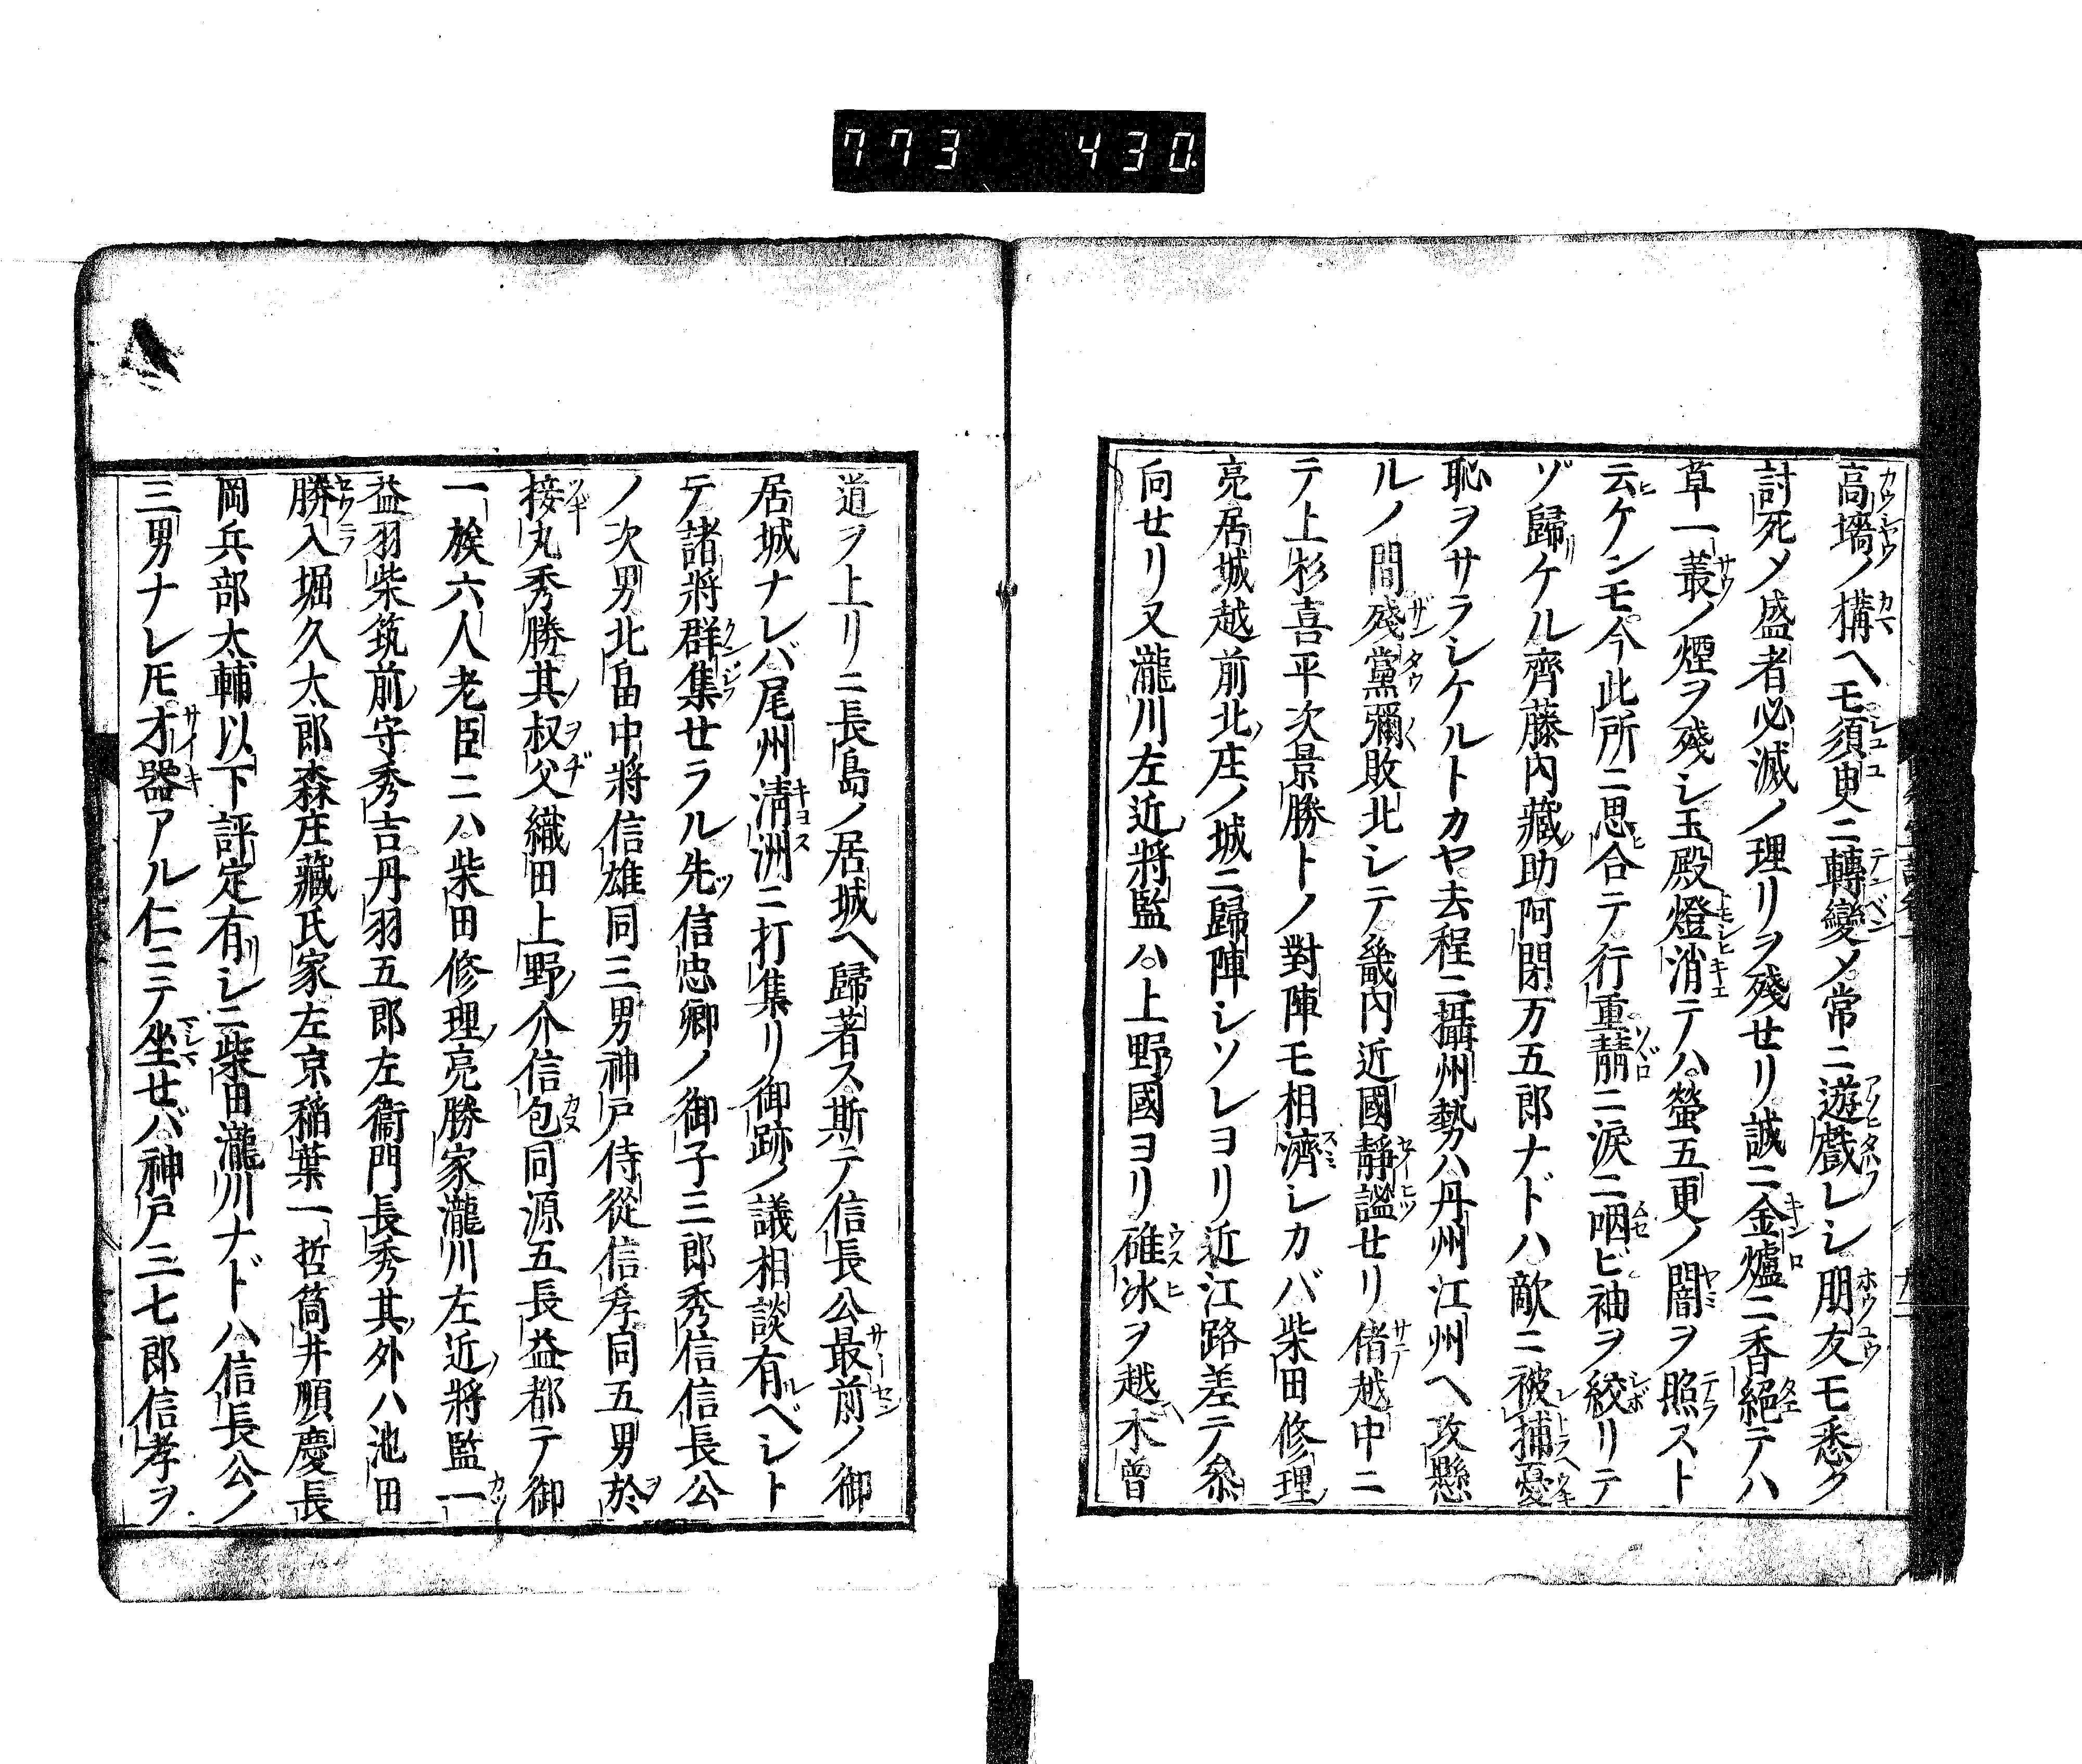 773 430.
高墻ノ構ヘモ須臾ニ轉變メ常ニ遊戯レシ朋友モ悉ク
討死メ盛者必滅ノ理リヲ殘セリ誠ニ金爐ニ香絕テハ
草一叢ノ煙ヲ殘シ玉殿燈消テハ螢五更ノ闇ヲ照スト
云ケンモ今此所ニ思合テ行重靜ニ淚ニ咽ビ袖ヲ絞リテ
ゾ歸ケル齊藤內藏助阿閉万五郎ナドハ敵ニ被捕憂
恥ヲサラシケルトカヤ去程ニ攝州勢ハ丹州江州ヘ攻懸
ルノ間殘黨彌敗北シテ畿內近國靜謐セリ偖越中ニ
テ上杉喜平次景勝トノ對陣モ相濟シカバ柴田修理
亮居城越前北庄ノ城ニ歸陣シソレヨリ近江路差テ參
向セリ又瀧川左近將監ハ上野國ヨリ碓冰ヲ越木曾
道ヲ上リニ長島ノ居城ヘ歸著ス斯テ信長公最前ノ御
居城ナレバ尾州淸洲ニ打集リ御跡ノ議相談有ベシト
テ諸將群集セラル先ツ信忠卿ノ御子三郎秀信信長公
ノ次男北畠中將信雄同三男神戶侍從信孝同五男於
接丸秀勝其叔父織田上野介信包同源五長益都テ御
一族六人老臣ニハ柴田修理亮勝家瀧川左近將監一
益羽柴筑前守秀吉丹羽五郎左衞門長秀其外ハ池田
勝入堀久太郎森庄藏氏家左京稲葉一哲筒井順慶長
岡兵部太輔以下評定有リシニ柴田瀧川ナドハ信長公ノ
三男ナレモ才器アル仁ニテ坐セバ神戶三七郎信孝ヲ